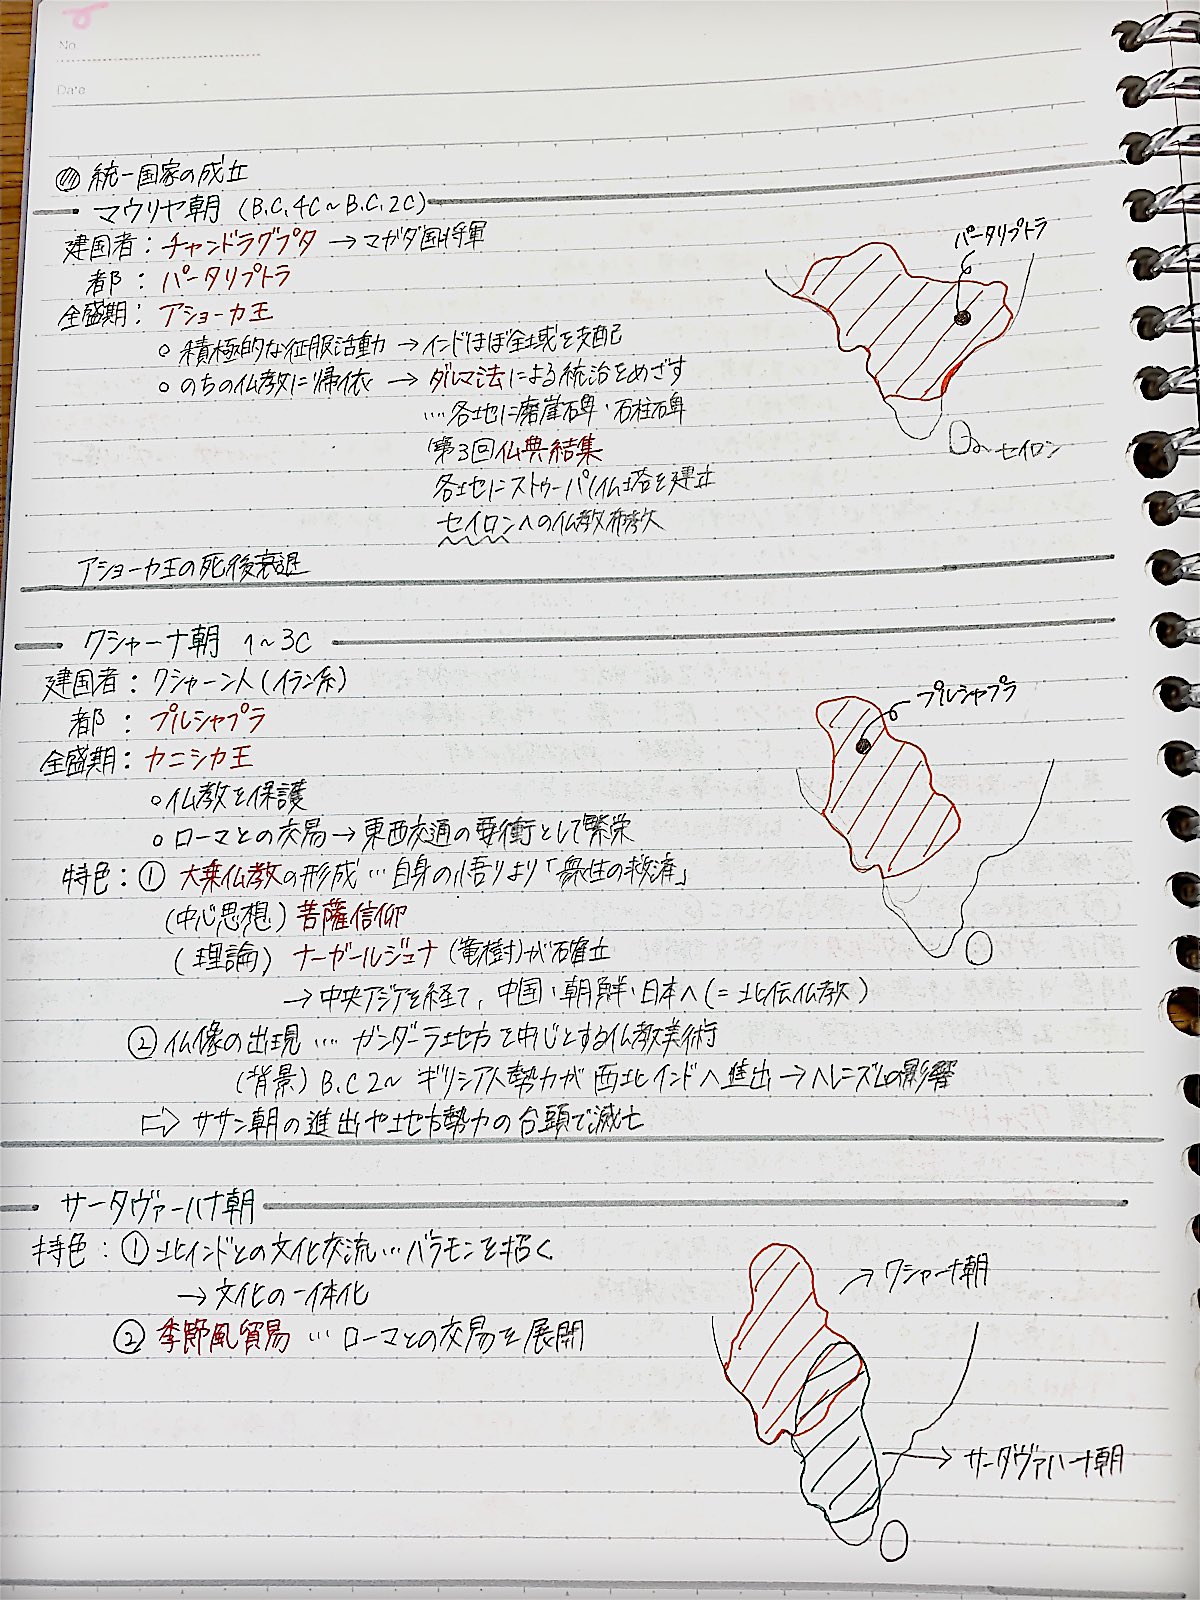 No.
Date
統一国家の成立
マウリヤ朝 (B.C.4C~B.C.2C)
建国者：チャンドラグプタ → マガダ国将軍
都：パータリプトラ
全盛期：アショーカ王
○積極的な征服活動 → インドほぼ全域を支配
○のちの仏教に帰依 → ダルマ法による統治をめざす
…各地に磨崖碑・石柱碑
第3回仏典結集
各地にストゥーパ(仏塔を建立
セイロンへの仏教布教
アショーカ王の死後衰退
パータリプトラ
セイロン
クシャーナ朝 1~3C
建国者：クシャーン人(イラン系)
都：プルシャプラ
全盛期：カニシカ王
○仏教を保護
○ローマとの交易→東西交通の要衝として繁栄
特色：① 大乗仏教の形成…自身の悟りより「衆生の救済」
(中心思想) 菩薩信仰
(理論) ナーガールジュナ(竜樹)が確立
→中央アジアを経て、中国・朝鮮・日本へ(=北伝仏教)
②仏像の出現…ガンダーラ地方を中心とする仏教美術
(背景) B.C2~ ギリシア人勢力が西北インドへ進出→ヘレニズムの影響
⇨ ササン朝の進出や地方勢力の台頭で滅亡
プルシャプラ
サータヴァーハナ朝
特色：①北インドとの文化交流…バラモンを招く
→文化の一体化
②季節風貿易…ローマとの交易を展開
→クシャーナ朝
→サータヴァハーナ朝